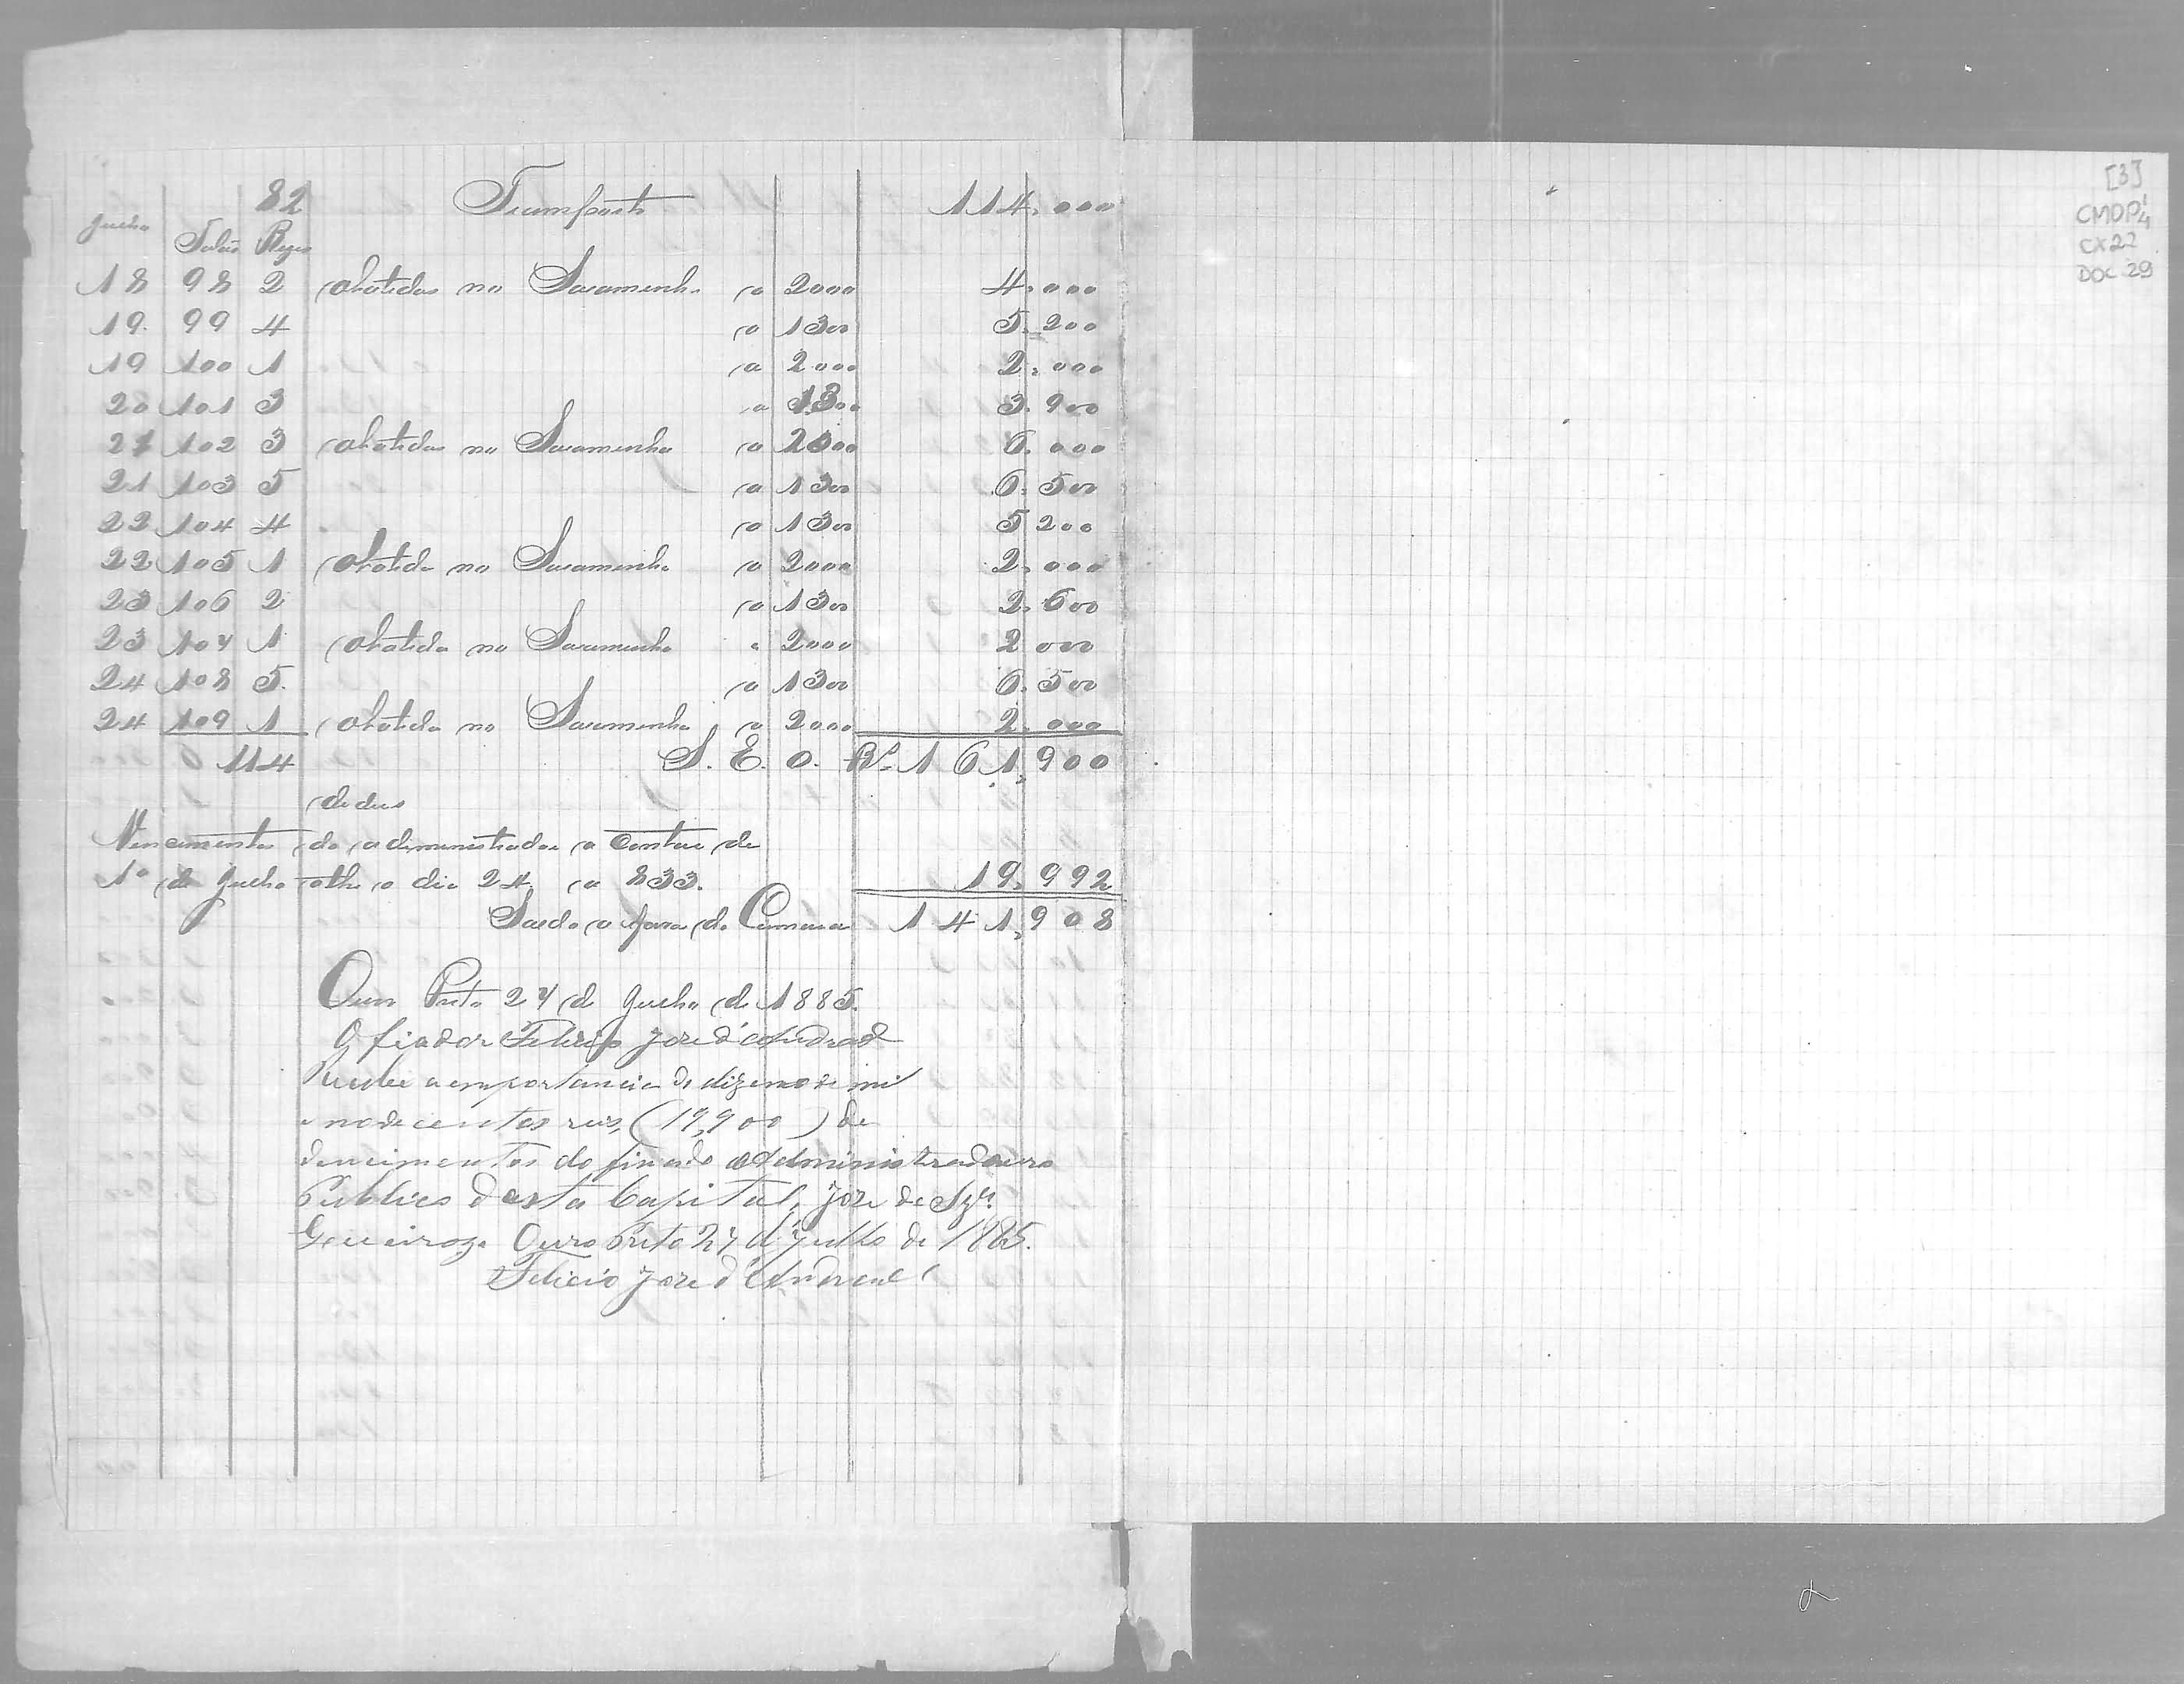 82 Transporte 114,000
Julho
Talão Rezes
18 98 2 abatidas no Saramenha a 2000 4,000
19. 99 4 a 1300 5,200
19 100 1 a 2000 2,000
20 101 3 a 1300 3,900
21 102 3 abatidas no Saramenha a 2000 6,000
21 103 5 a 1300 6,500
22 104 4 a 1300 5 200
22 105 1 abatida no Saramenha a 2000 2,000
23 106 2 a 1300 2,600
23 107 1 abatida no Saramenha a 2000 2 000
24 108 5. a 1300 6,500
24 109 1 abatida no Saramenha a 2000 2,000
114 S. E. O. Rs 161,900
dedus
Vencimentos do administrador a contar de
1º de Julho athe o dia 24 a 833. 19,992
Saldo a favor da Camara 141,908
Ouro Preto 27 de Julho de 1885.
O fiador Felicio José d'Andrade
Recebi a emportancia de dizenove mil
e novecentos reis, (19,900) de
vencimentos do finado Administrador
Publico desta Capital, José de
Queiroga Ouro Preto 27 de Julho de 1885.
Felicio José d'Andrade
[3]
CMOP
CX 22
DOC. 29